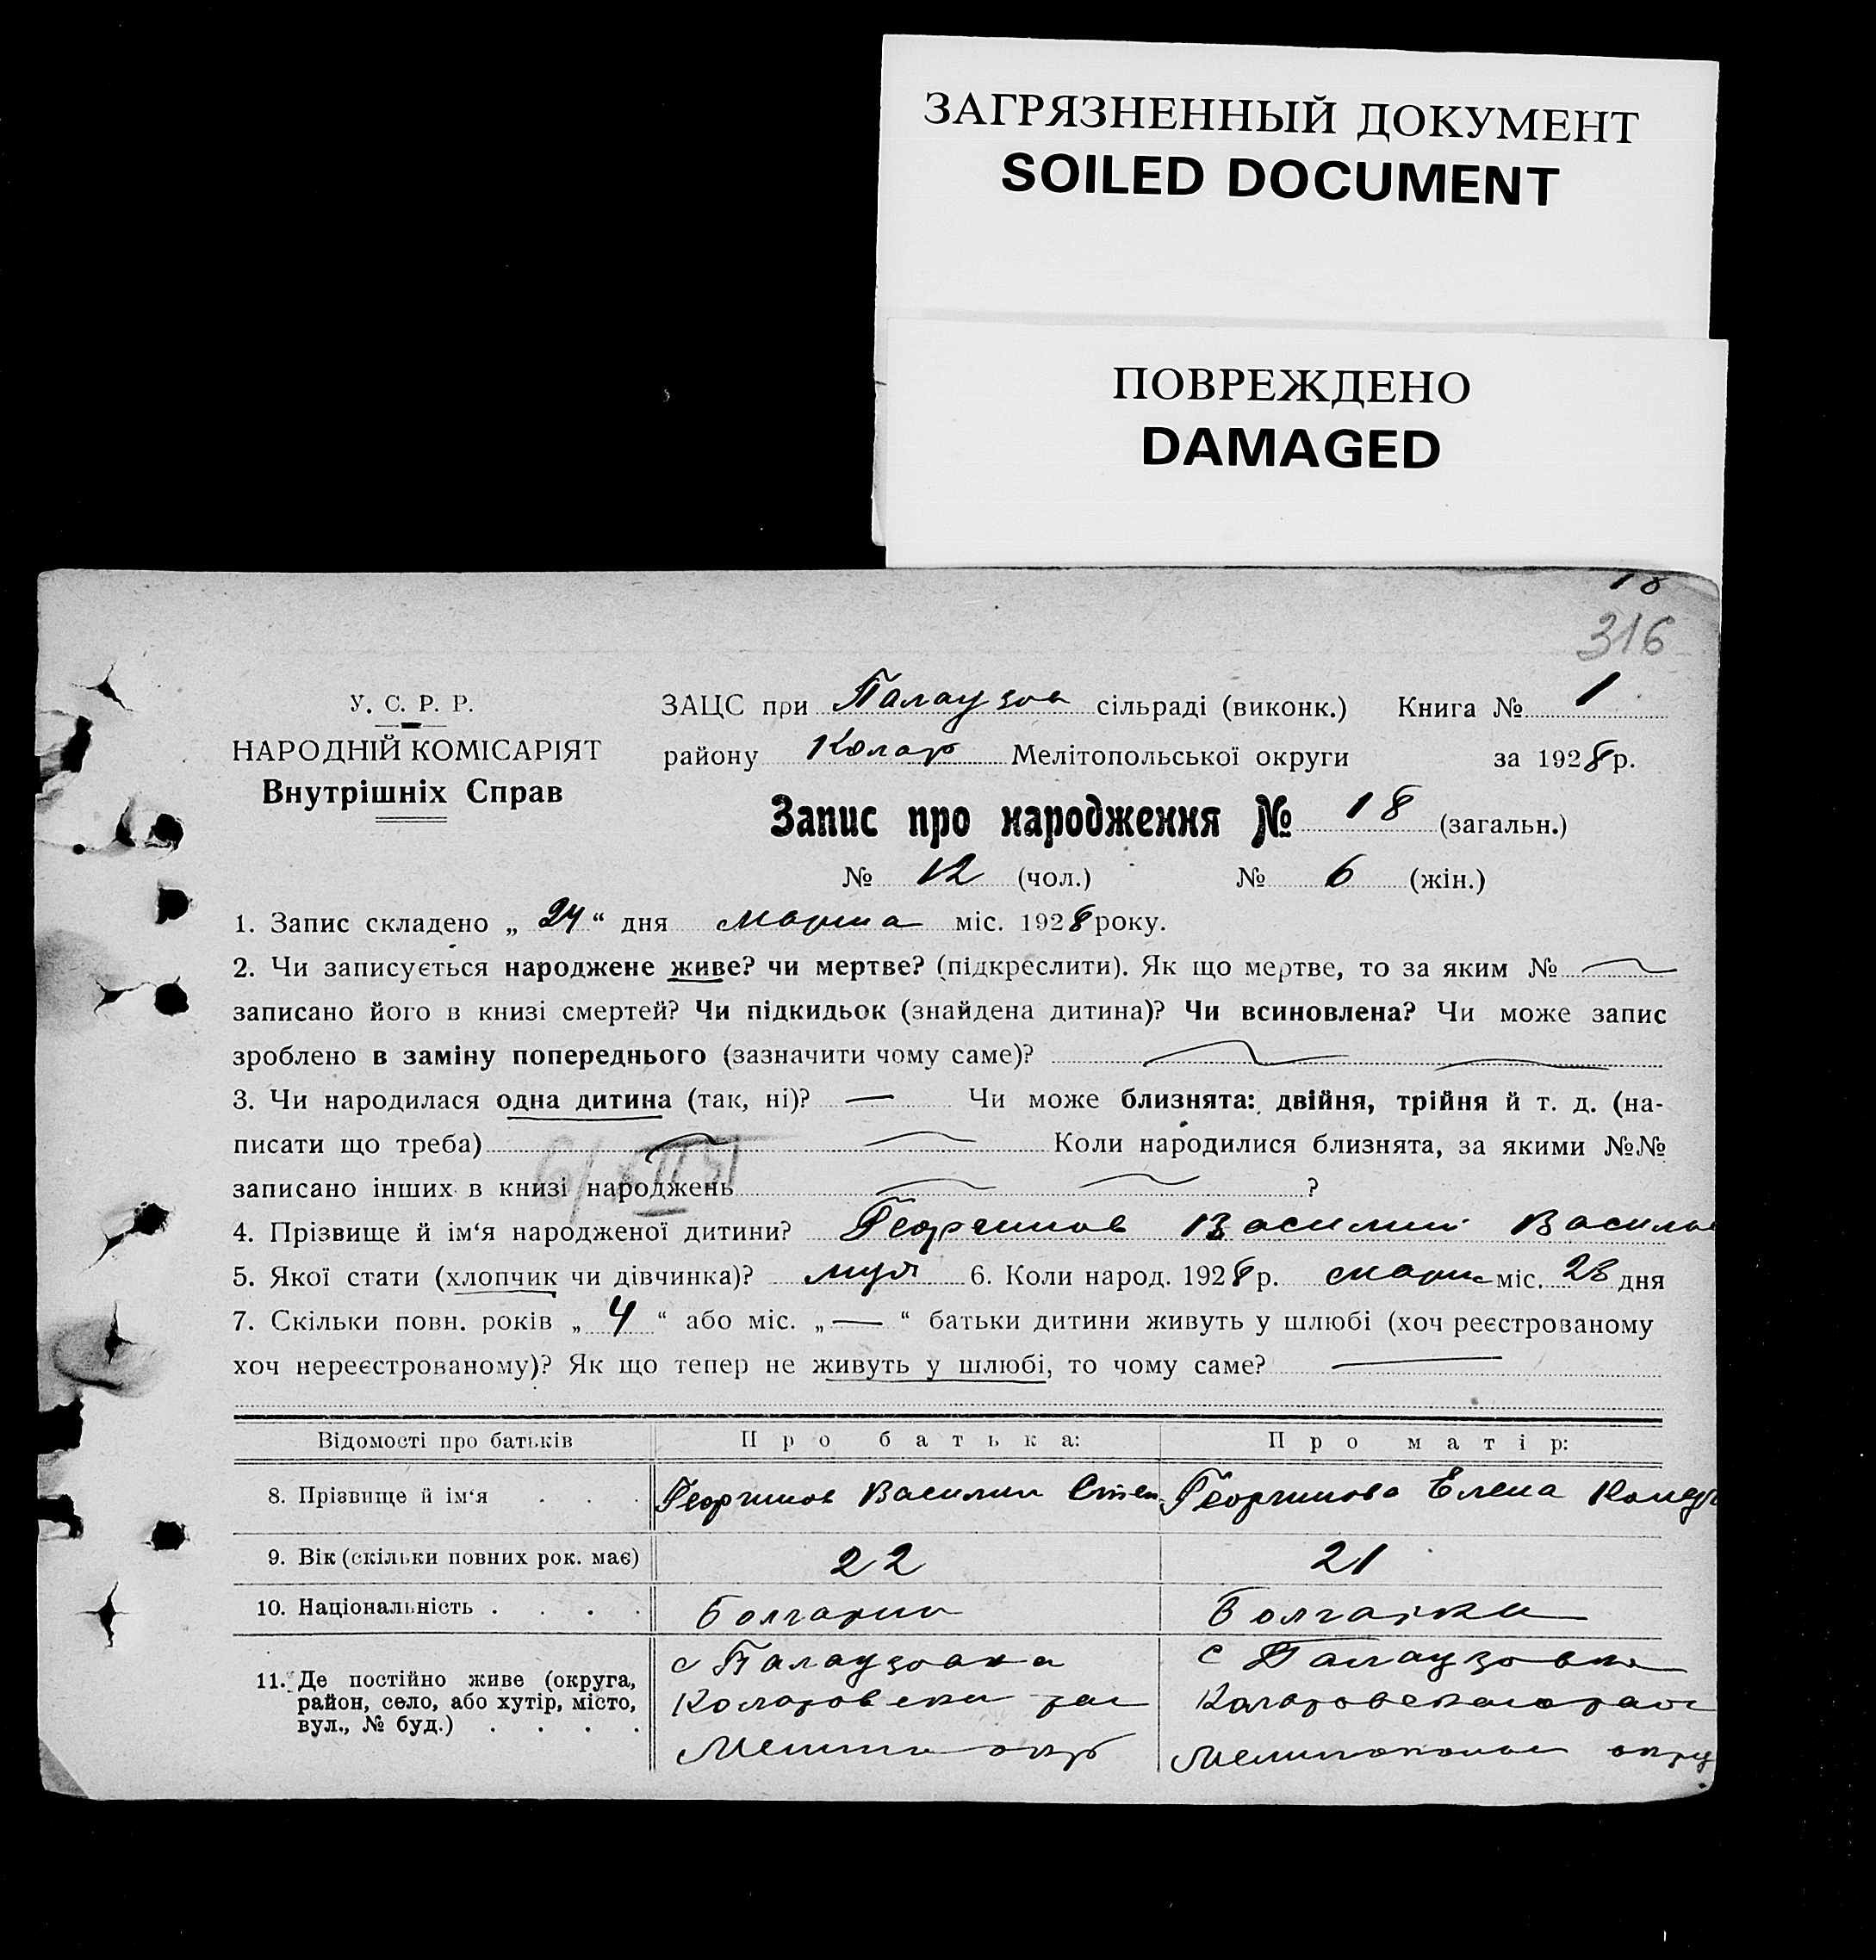 ЗАГРЯЗНЕННЫЙ ДОКУМЕНТ
SOILED DOCUMENT
ПОВРЕЖДЕНО
DAMAGED
18
316
У. С. Р. Р.
НАРОДНІЙ КОМІСАРІЯТ
Внутрішніх Справ
ЗАЦС при Палаузов сільраді (виконк.) Книга № 1
району Колар Мелітопольської округи за 1928 р.
Запис про народження № 18 (загальн.)
№ 12 (чол.) № 6 (жін.)
1. Запис складено „ 24 “ дня марта міс. 1928 року.
2. Чи записується народжене живе? чи мертве? (підкреслити). Як що мертве, то за яким №
записано його в книзі смертей? Чи підкидьок (знайдена дитина)? Чи всиновлена? Чи може запис
зроблено в заміну попереднього (зазначити чому саме)?
3. Чи народилася одна дитина (так, ні)? — Чи може близнята: двійня, трійня й т. д. (на-
писати що треба) Коли народилися близнята, за якими №№
записано інших в книзі народжень ?
4. Прізвище й ім‘я народженої дитини? Георгинов Василий Василь
5. Якої стати (хлопчик чи дівчинка)? муж 6. Коли народ. 1928 р. марта міс. 23 дня
7. Скільки повн. років „ 4 “ або міс. „ — “ батьки дитини живуть у шлюбі (хоч реєстрованому
хоч нереєстрованому)? Як що тепер не живуть у шлюбі, то чому саме? —
Відомості про батьків Про батька: Про матір:
8. Прізвище й ім‘я . . . Георгинов Василий Степ Георгинова Елена Конд
9. Вік (скільки повних рок. має) 22 21
10. Національність . . . . Болгарин Болгарка
11. Де постійно живе (округа, с Палаузовка с Палаузовка
район, село, або хутір, місто, Коларовски рай Коларовского райо
вул., № буд.) . . . . Мелит окр Мелитополь окру